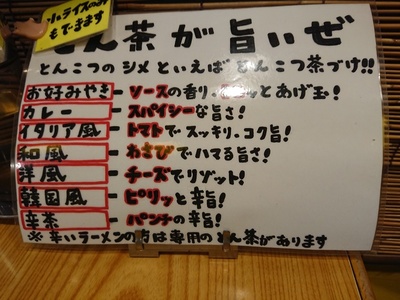 小ライスのみ
もできます
とん茶が旨いぜ
とんこつのシメといえば とんこつ茶づけ!!
お好みやき - ソースの香り、とあげ玉!
カレー - スパイシーな旨さ!
イタリア風 - トマトでスッキリ、コク旨!
和風 - わさびでハマる旨さ!
洋風 - チーズでリゾット!
韓国風 - ピリッと辛旨!
辛茶 - パンチの辛旨!
※ 辛いラーメンの方は専用のとん茶があります